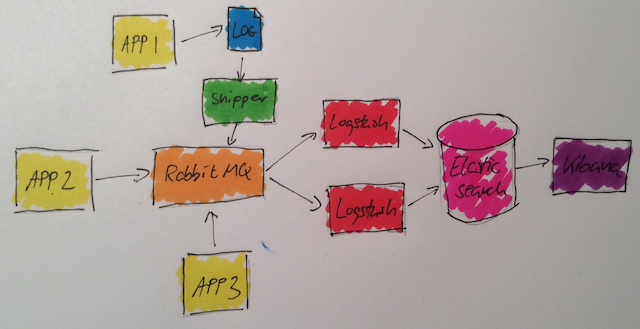 APP 1
LOG
shipper
APP 2
RabbitMQ
Logstash
Logstash
Elastic
search
Kibana
APP 3